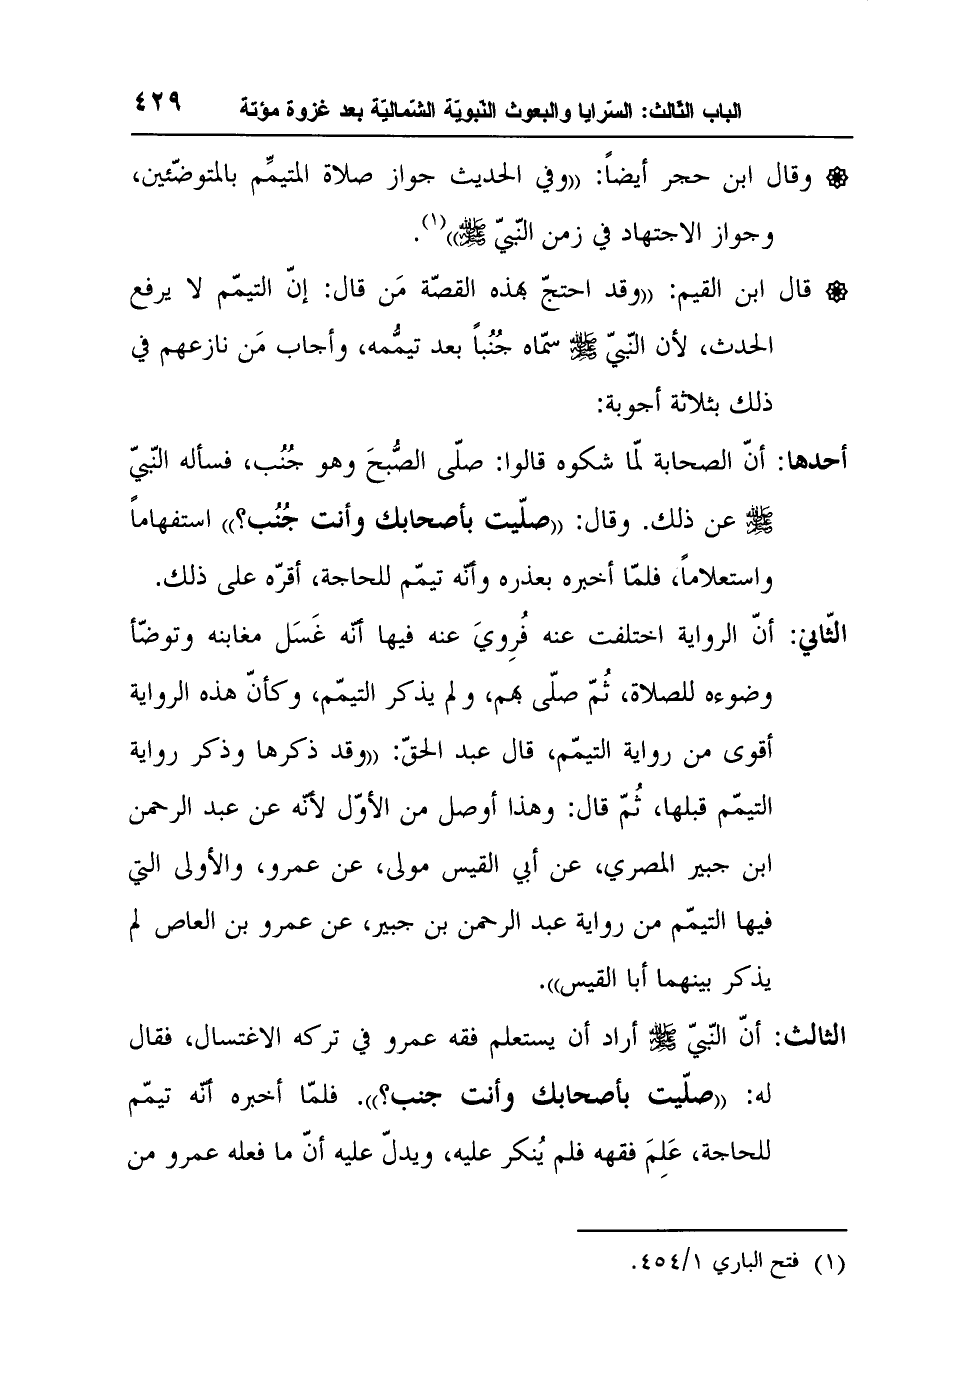 الباب الثّالث: السّرايا والبعوث النّبويّة الشّماليّة بعد غزوة مؤتة ٤٢٩
❁ وقال ابن حجر أيضاً: ((وفي الحديث جواز صلاة المتيمِّم بالمتوضّئين،
وجواز الاجتهاد في زمن النّبيّ ﷺ))(١).
❁ قال ابن القيم: ((وقد احتجّ بهذه القصّة مَن قال: إنّ التيمّم لا يرفع
الحدث، لأن النّبيّ ﷺ سمّاه جُنُباً بعد تيمُّمه، وأجاب مَن نازعهم في
ذلك بثلاثة أجوبة:
أحدها: أنّ الصحابة لمّا شكوه قالوا: صلّى الصُّبحَ وهو جُنُب، فسأله النّبيّ
ﷺ عن ذلك. وقال: ((صلّيت بأصحابك وأنت جُنُب؟)) استفهاماً
واستعلاماً، فلمّا أخبره بعذره وأنّه تيمّم للحاجة، أقرّه على ذلك.
الثّاني: أنّ الرواية اختلفت عنه فُرِويَ عنه فيها أنّه غَسَل مغابنه وتوضّأ
وضوءه للصلاة، ثُمّ صلّى بهم، ولم يذكر التيمّم، وكأنّ هذه الرواية
أقوى من رواية التيمّم، قال عبد الحقّ: ((وقد ذكرها وذكر رواية
التيمّم قبلها، ثُمّ قال: وهذا أوصل من الأوّل لأنّه عن عبد الرحمن
ابن جبير المصري، عن أبي القيس مولى، عن عمرو، والأولى التي
فيها التيمّم من رواية عبد الرحمن بن جبير، عن عمرو بن العاص لم
يذكر بينهما أبا القيس)).
الثالث: أنّ النّبيّ ﷺ أراد أن يستعلم فقه عمرو في تركه الاغتسال، فقال
له: ((صلّيت بأصحابك وأنت جنب؟)). فلمّا أخبره أنّه تيمّم
للحاجة، عَلِمَ فقهه فلم يُنكر عليه، ويدلّ عليه أنّ ما فعله عمرو من
(١) فتح الباري ٤٥٤/١.